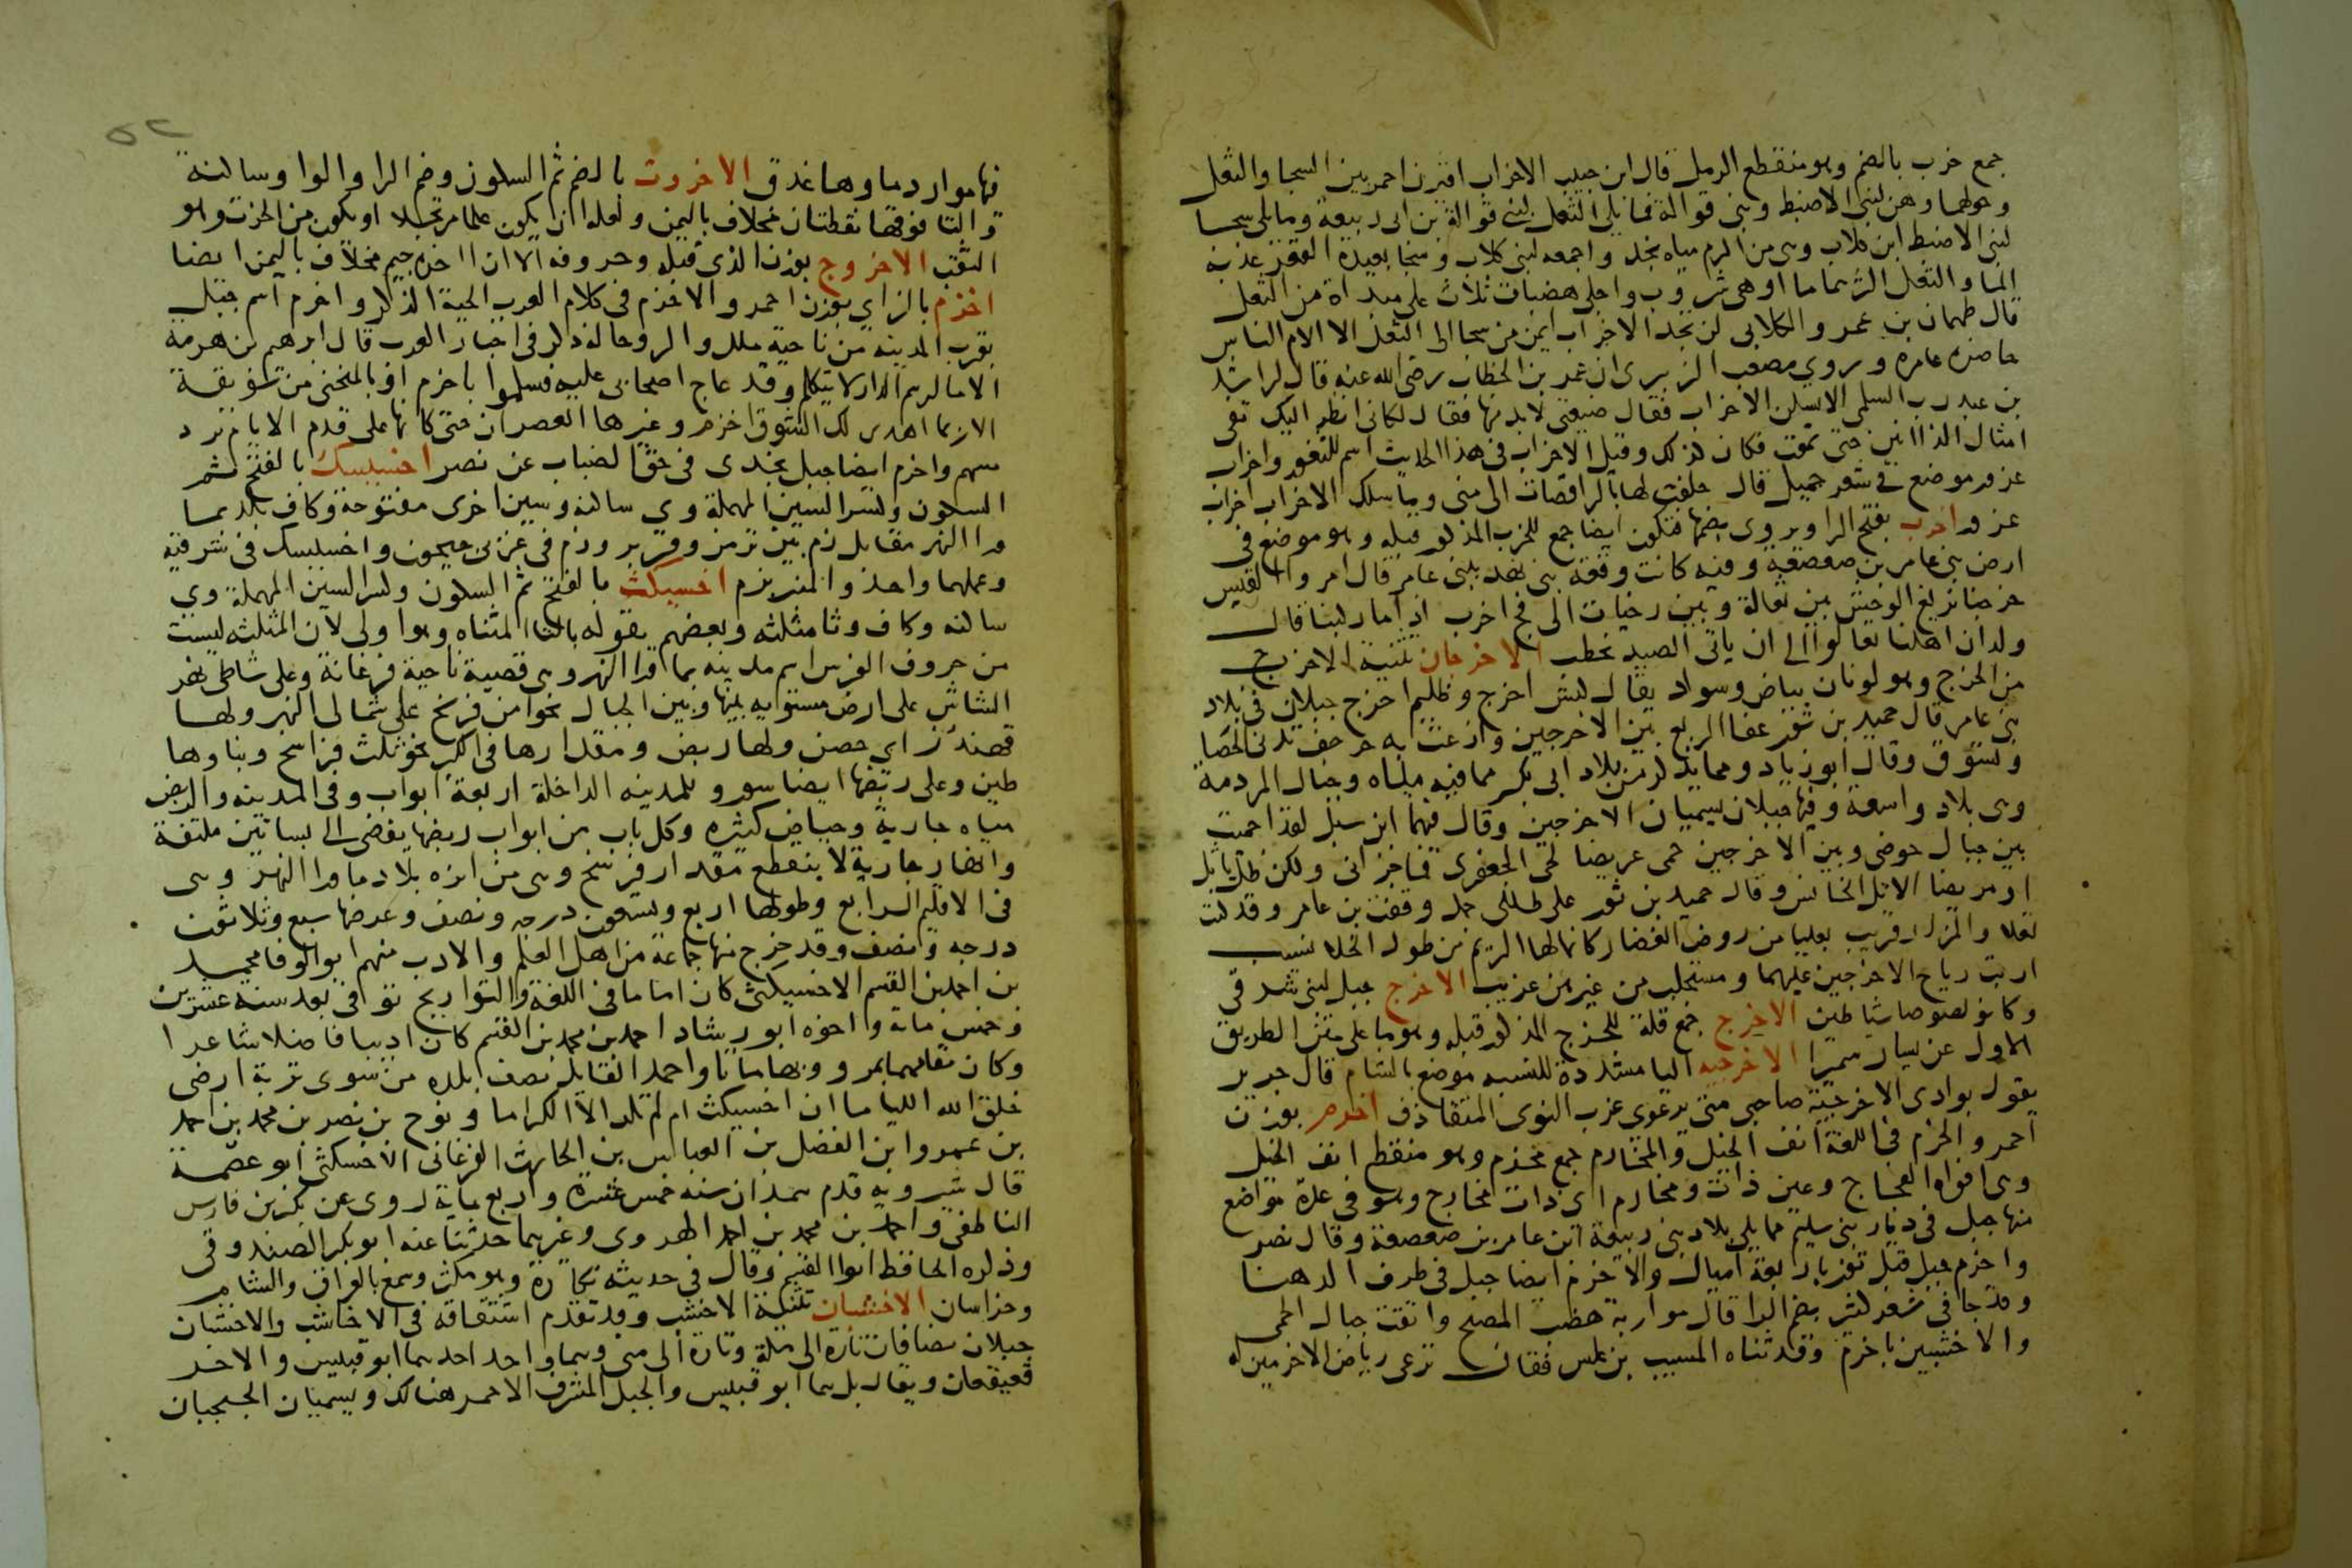 جمع خرب بالضم وهو منقطع الرمل قال ابن حبيب الاخراب اقيرن احمر بين السجا والثعل
وحولهما وهن لبنى الاضبط وبنى قوالة فما يلى الثعل لبنى قوالة بن ابى ربيعة وما يلى سجا
لبنى الاضبط ابن كلاب وهى من اكرم مياه نجد واجمعه لبنى كلاب وسجا بعيدة القعر عذبة
الما والثعل اكثرهما ما اوهى شروب واجلى هضبات ثلاث على مبداة من الثعل
قال طهمان بن عمرو الكلابى لن تجد الاخراب ايمن من سجا الى الثعل الا الام الناس
حاضره عامره وروى مصعب الزبيرى ان عمر بن الخطاب رضى الله عنه قال لراشد
بن عبد رب السلمى الا تسكن الاخراب فقال ضيعتى لابد منها فقال لكانى انظر اليك تقى
امثال الذاانين حتى تموت فكان كذلك وقيل الاخراب فى هذا الحديث اسم للثغور واخراب
عزور موضع فى شعر جميل قال حلفت لها بالراقصات الى منى وما سلك الاخراب اخراب
عزور اخرب بفتح الرا ويروى بضمها فتكون ايضا جمع للخرب المذكور قبله وهو موضع فى
ارض بنى عامر بن صعصعة وفيه كانت وقعة بنى نهد ببنى عامر قال امرو القيس
خرجنا نريغ الوحش بين ثعالة وبين رخيات الى فج اخرب اذا ما ركبنا قال
ولدان اهلنا تعالوا الى ان ياتى الصيد نحطب الاخرجان تثنية الاخرج
من الخرج وهو لونان بياض وسواد يقال كبش اخرج وظليم اخرج جبلان فى بلاد
بنى عامر قال حميد بن ثور عفا الربع بين الاخرجين واوزعت به حرجف تدنى الحصا
وتسوق وقال ابو زياد ومما يذكر من بلاد ابى بكر مما فيه مياه وجبال المردمة
وهى بلاد واسعة وفيها جبلان يسميان الاخرجين وقال فيهما ابن شبل لقد احميت
بين جبال حوضى وبين الاخرجين حمى عريضا لحى الجعفرى فما جزانى ولكن ظل ياتل
او مريضا الاتل الخانس وقال حميد بن ثور على طللى جمل وقفت بن عامر وقد كنت
تعلا والمزار قريب بعليا من روض الغضار كانما لها الريم من طول الخلا نسيب
اربت رياح الاخرجين عليهما ومستجلب من غيرهن غريب الاخرج جبل لبنى شرقى
وكانو لصوصا شياطين الاخرج جمع قلة للخرج المذكور قبله وهو ما على متن الطريق
الاول عن يسار سميرا الاخرجيه اليا مشددة للنسبه موضع بالشام قال جرير
يقول بوادى الاخرجية صاحبى متى يرعوى غرب النوى المتقاذف اخرم بوزن
احمر والخرم فى اللغة انف الجبل والمخارم جمع مخرم وهو منقطع انف الجبل
وهى افواه الفجاج وعين ذات ومخارم اى ذات مخارج وهو فى عدة مواضع
منها جبل فى ديار بنى سليم مما يلى بلاد بنى ربيعة ابن عامر بن صعصعة وقال نصر
واخرم جبل قبل توز باربعة اميال والاخرم ايضا جبل فى طرف الدهنا
وقد جا فى شعر كثير بضم الرا قال موازية هضب المصبح واتقت جبال الحمى
والاخشبين باخرم وقد ثناه المسيب بن علس فقال ترعى رياض الاخرمين له
٥٢
فيها موارد ماوها غدق الاخروت بالضم ثم السكون وضم الرا والوا وساكنة
والتا فوقها نقطتان مخلاف باليمن ولعله ان يكون علما مرتجلا او يكون من الخرت وهو
الثقب الاخروج بوزن الذى قبله وحروفه الا ان اخره جيم مخلاف باليمن ايضا
اخزم بالزاى بوزن احمر والاخزم فى كلام العرب الحية الذكر واخزم اسم جبل
بقرب المدينه من ناحية ملل والروحا له ذكر فى اخبار العرب قال ابراهيم بن هرمة
الا ما لرسم الدار لا يتكلم وقد عاج اصحابى عليه فسلموا باخزم او بالمنحنى من سويقة
الا ربما اهدى لك الشوق اخزم وغيرها العصران حتى كانها على قدم الايام برد
مسهم واخزم ايضا جبل نجدى فى حق الضباب عن نصر اخسيسك بالفتح ثم
السكون وكسر السين المهملة وى ساكنه وسين اخرى مفتوحة وكاف بلد بما
ورا النهر مقابل زم بين ترمذ وفربر وزم فى غربى جيحون واخسيسك فى شرقيه
وعملهما واحد والمنبر بزم اخسيكث بالفتح ثم السكون وكسر السين المهملة وى
ساكنه وكاف وثا مثلثه وبعضهم يقوله بالتا المثناه وهو اولى لان المثلثه ليست
من حروف الفرس اسم مدينه بما ورا النهر وهى قصبة ناحية فرغانة وعلى شاطى نهر
الشاش على ارض مستويه بينها وبين الجبال نحوا من فرسخ على شمالى النهر ولها
قهندز اى حصن ولها ربض ومقدارها فى الكبر نحو ثلث فراسخ وبناوها
طين وعلى ربضها ايضا سور وللمدينه الداخلة اربعة ابواب وفى المدينه والربض
مياه جارية وحياض كثيره وكل باب من ابواب ربضها يفضى الى بساتين ملتفة
وانهار جارية لا ينقطع مقدار فرسخ وهى من انزه بلاد ما ورا النهر وهى
فى الاقليم الرابع وطولها اربع وتسعون درجه ونصف وعرضها سبع وثلاثون
درجه ونصف وقد خرج منها جماعة من اهل العلم والادب منهم ابو الوفا محمد
بن احمد بن القسم الاخسيكثى كان اماما فى اللغة والتواريخ توافى بعد سنه عشرين
وخمس ماية واخوه ابو رشاد احمد بن محمد بن القسم كان اديبا فاضلا شاعرا
وكان مقامهما بمرو وبها ماتا واحمد القايل يصف بلده من سوى تربة ارضى
خلق الله الليا ما ان اخسيكث ام لم تلد الا الكراما ونوح بن نصر بن محمد بن احمد
بن عمرو ابن الفضل بن العباس بن الحارث الفرغانى الاخسكثى ابو عصمة
قال شيرويه قدم همذان سنه خمس عشرة واربع ماية روى عن بكر بن فارس
الناطفى واحمد بن محمد بن احمد الهروى وغيرهما حدثنا عنه ابو بكر الصندوقى
وذكره الحافظ ابو القسم وقال فى حديثه نكارة وهو مكثر وسمع بالعراق والشام
وخراسان الاخشبان تثنية الاخشب وقد تقدم اشتقاقه فى الاخاشب والاخشبان
جبلان يضافان تارة الى مكة وتارة الى منى وهما واحد احدهما ابو قبيس والاخر
قعيقعان ويقال بل هما ابو قبيس والجبل المشرف الاحمر هنالك ويسميان الجبجبان